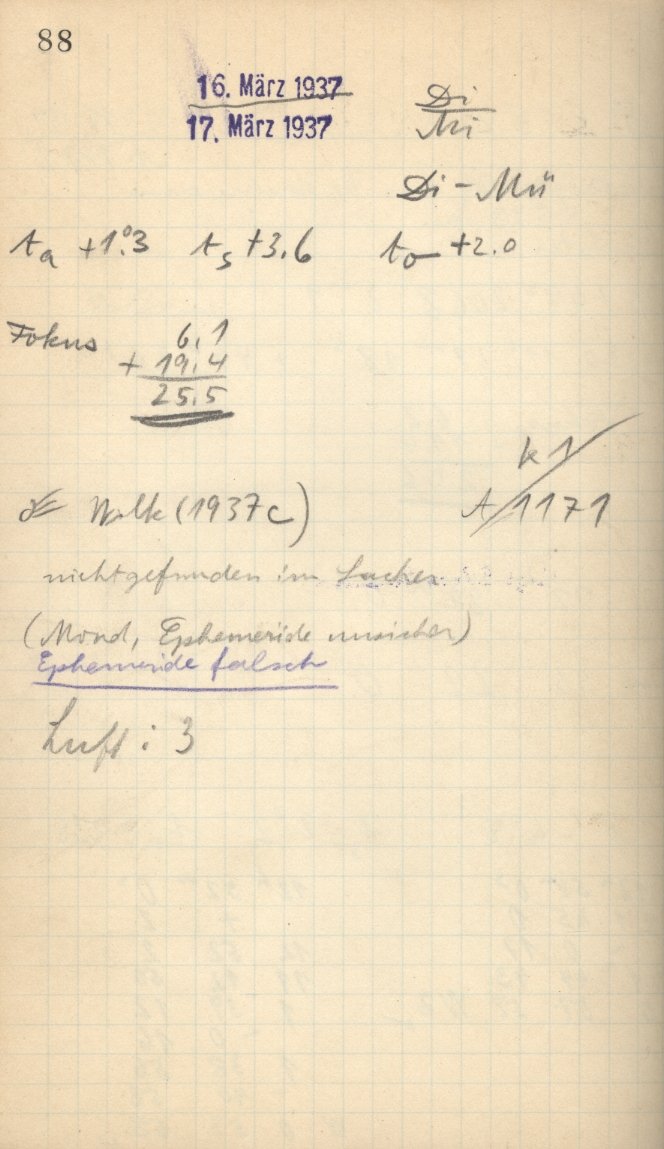 88
16. März 1937 Di
17. März 1937 Mi
Di - Mü
ta +1°.3 ts +3.6 to +2.0
Fokus 6,1
+ 19,4
25,5
k 1
Wilk (1937c) A 1171
nicht gefunden im Sucher
(Mond, Ephemeride unsicher)
Ephemeride falsch
Luft : 3